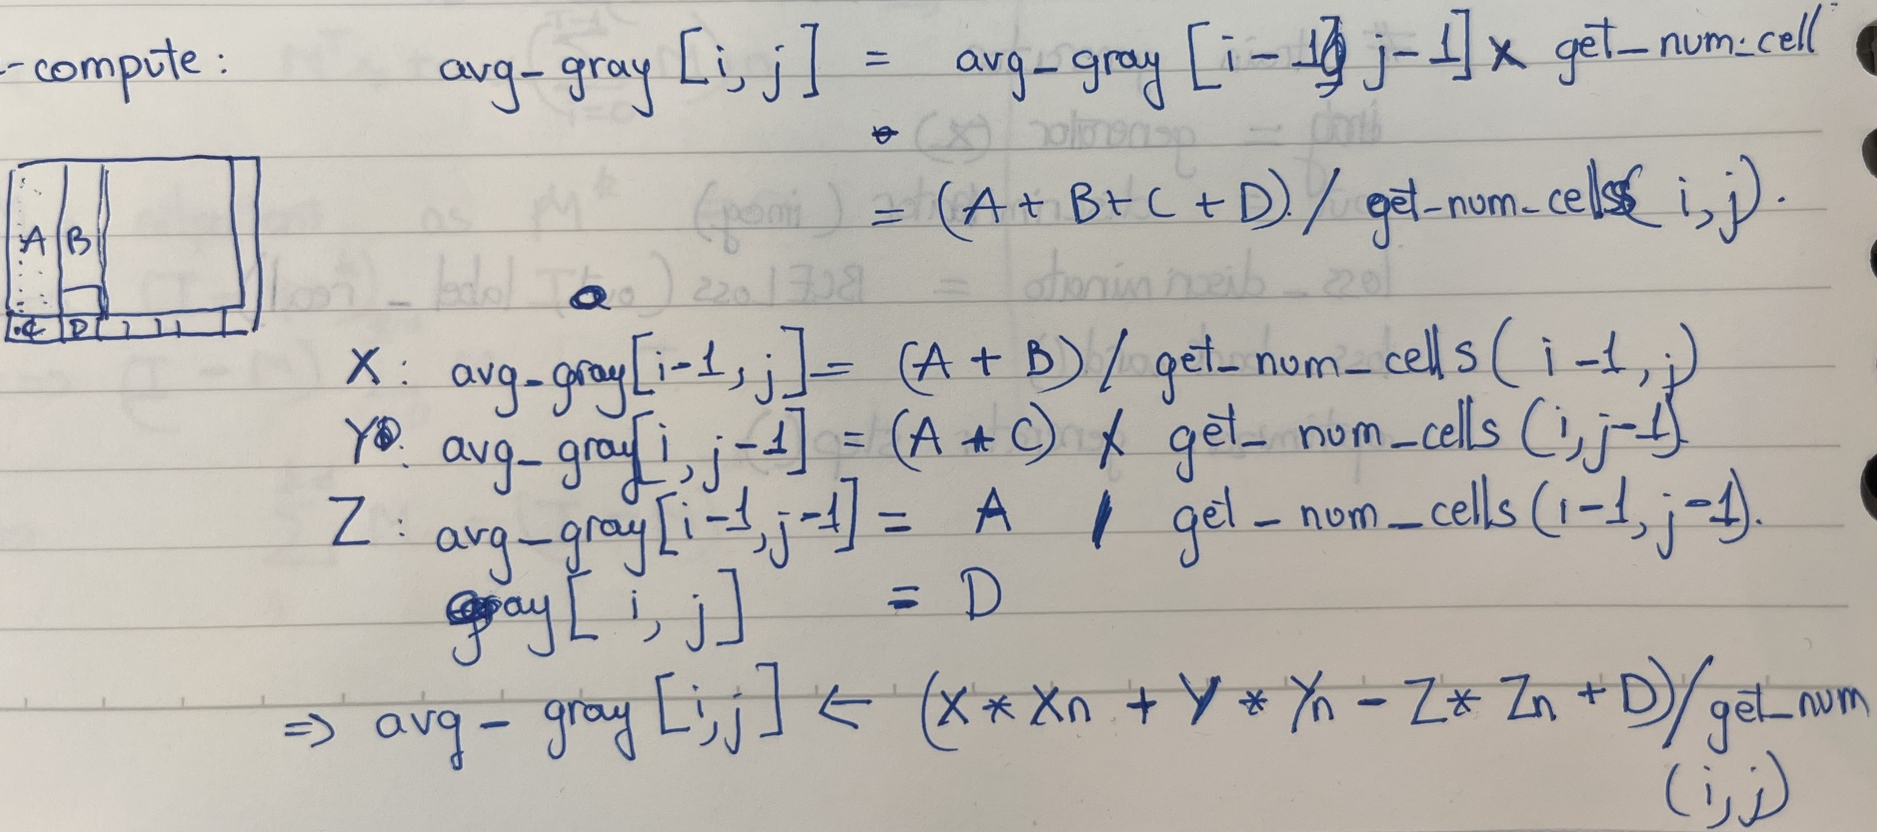 -compute: avg-gray [i, j] = avg-gray [i-1, j-1] x get-num-cell
= (A + B + C + D) / get-num-cells( i, j).
A B
C D
X: avg-gray[i-1, j] = (A + B) / get-num-cells ( i -1, j)
Y: avg-gray[i, j-1] = (A + C) / get-num-cells (i, j-1)
Z: avg-gray[i-1, j-1] = A / get-num-cells (i-1, j-1).
gray[ i, j] = D
=> avg-gray [i,j] ← (X * Xn + Y * Yn - Z * Zn + D)/get-num
(i,j)